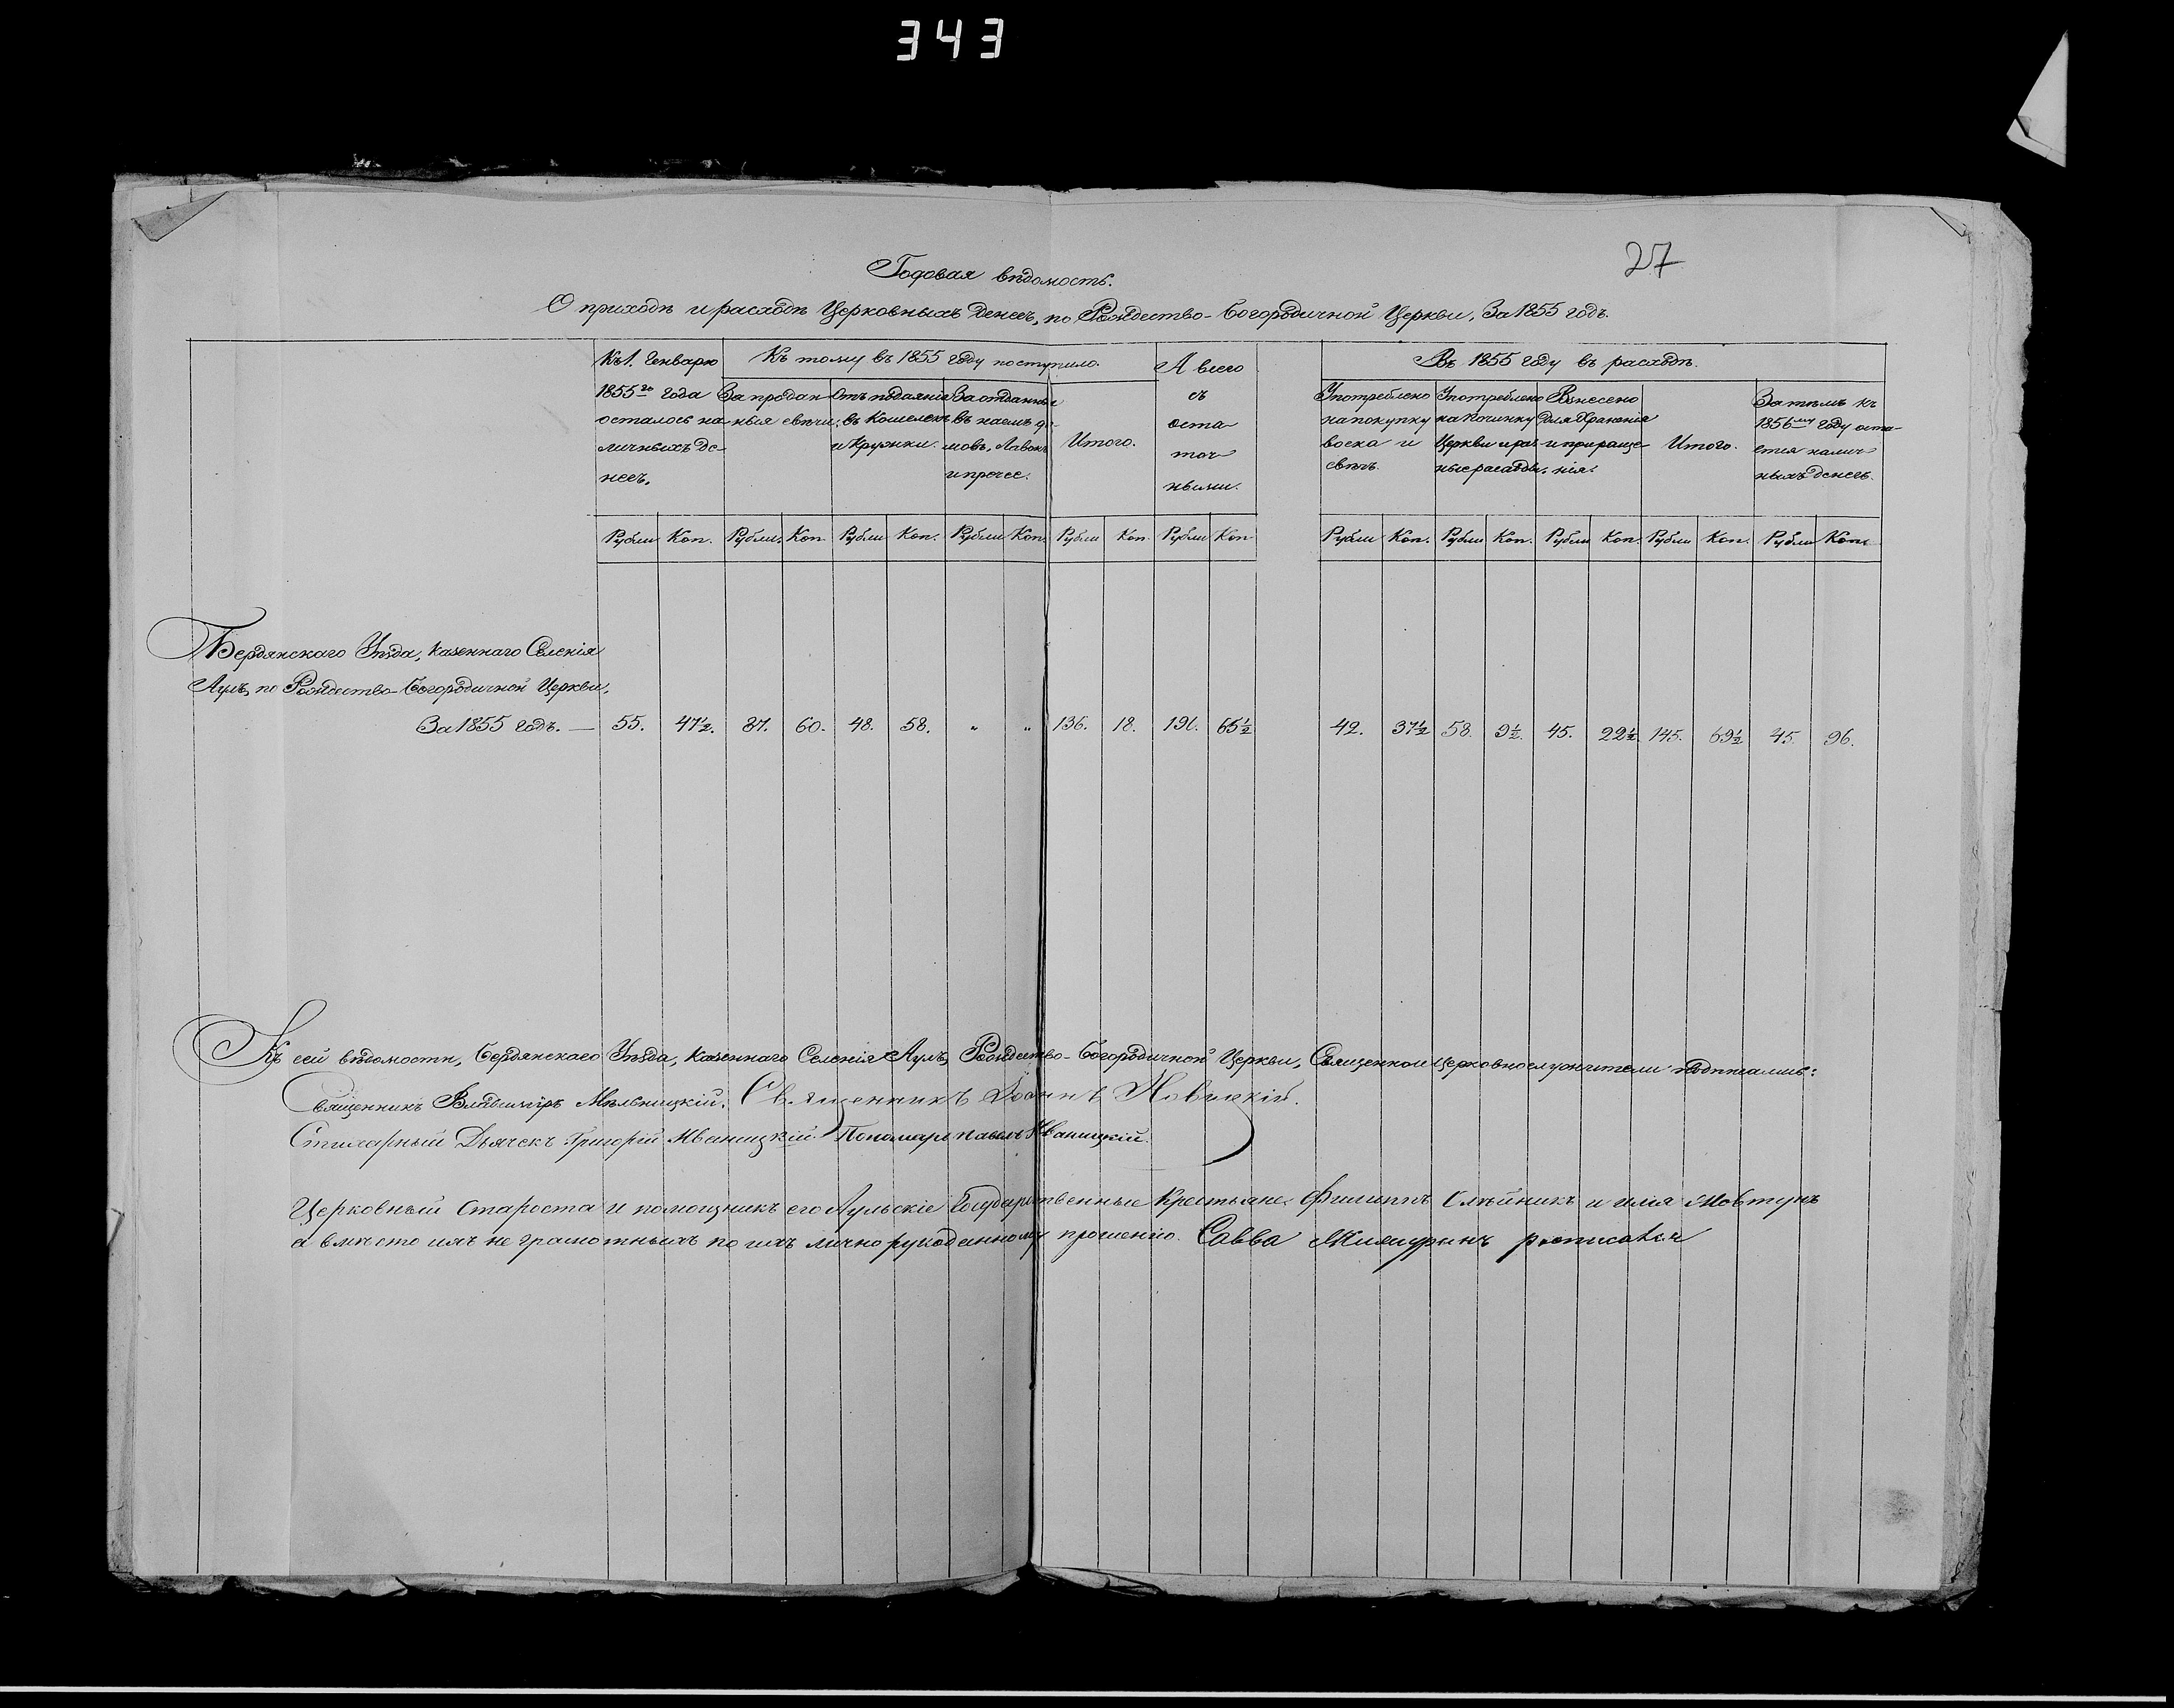 343
27
Годовая вѣдомость.
О приходѣ и расходѣ Церковныхъ Денегъ, по Рождество-Богородичной Церкви, За 1855 годъ.
Къ 1. Генварю
1855го года
осталось на-
личныхъ Де-
негъ.
Къ тому въ 1855 году поступило.
За продан-
ныя свѣчи.
Отъ подаянія
въ Кошелекъ
и Кружки.
За отданныя
въ наемъ до-
мовъ, Лавокъ
и прочее.
Итого.
А всего
съ
оста-
точ-
ными.
Въ 1855 году въ расходѣ.
Употреблено
на покупку
воска и
свѣчъ.
Употреблено
на Починку
Церкви и раз-
ные расходы.
Взнесено
для Храненія
и прираще-
нія.
Итого.
За тѣмъ къ
1856му году оста-
ется налич-
ныхъ денегъ.
Рубли Коп. Рубли. Коп. Рубли Коп. Рубли Коп. Рубли Коп. Рубли Коп. Рубли Коп. Рубли Коп. Рубли Коп. Рубли Коп. Рубли Коп.
Бердянскаго Уѣзда, казеннаго Селенія
Аулъ, по Рождество-Богородичной Церкви,
За 1855 годъ. — 55. 47½. 87. 60. 48. 58. „ „ 136. 18. 191. 65½ 42. 37½ 58. 9½. 45. 22½ 145. 69½ 45. 96.
Къ сей вѣдомости, Бердянскаго Уѣзда, казеннаго Селенія Аулъ, Рождество-Богородичной Церкви, Священно и церковнослужители подписались:
Священникъ Владимиръ Мѣльницкій. Священникъ Іоаннъ Новицкій.
Стихарный Дьячекъ Григорій Иваницкій. Пономарь павелъ Иваницкій.
Церковный Староста и помощникъ его Аульскіе Государственные Крестьяне Филиппъ Олѣйникъ и илія Мовтунъ
а вмѣсто ихъ не грамотныхъ по ихъ лично рукоданному прошенію. Савва росписался